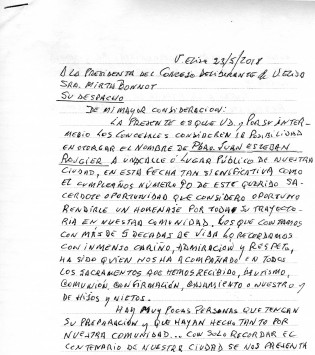 V. ELISA 23/5/2018
A LA PRESIDENTA DEL CONCEJO DELIBERANTE V. ELISA
SRA. MIRTA BONNOT
SU DESPACHO
DE MI MAYOR CONSIDERACION:
LA PRESENTE ES QUE UD. Y POR SU INTER-
MEDIO LOS CONCEJALES CONSIDEREN LA POSIBILIDAD
EN OTORGAR EL NOMBRE DE PBRO. JUAN ESTEBAN
ROUGIER A UNA CALLE O LUGAR PÚBLICO DE NUESTRA
CIUDAD, EN ESTA FECHA TAN SIGNIFICATIVA COMO
EL CUMPLEAÑOS NÚMERO 90 DE ESTE QUERIDO SA-
CERDOTE OPORTUNIDAD QUE CONSIDERO OPORTUNO
RENDIRLE UN HOMENAJE POR TODA SU TRAYECTO-
RIA EN NUESTRA COMUNIDAD. LOS QUE CONTAMOS
CON MÁS DE 5 DECADAS DE VIDA LO RECORDAMOS
CON INMENSO CARIÑO, ADMIRACION Y RESPETO,
HA SIDO QUIEN NOS HA ACOMPAÑADO EN TODOS
LOS SACRAMENTOS QUE HEMOS RECIBIDO, BAUTISMO,
COMUNIÓN, CONFIRMACIÓN, CASAMIENTO O NUESTRO Y
DE HIJOS Y NIETOS.
HAY MUY POCAS PERSONAS QUE TENGAN
SU PREPARACIÓN Y QUE HAYAN HECHO TANTO POR
NUESTRA COMUNIDAD... CON SOLO RECORDAR EL
CENTENARIO DE NUESTRA CIUDAD SE NOS PRESENTA